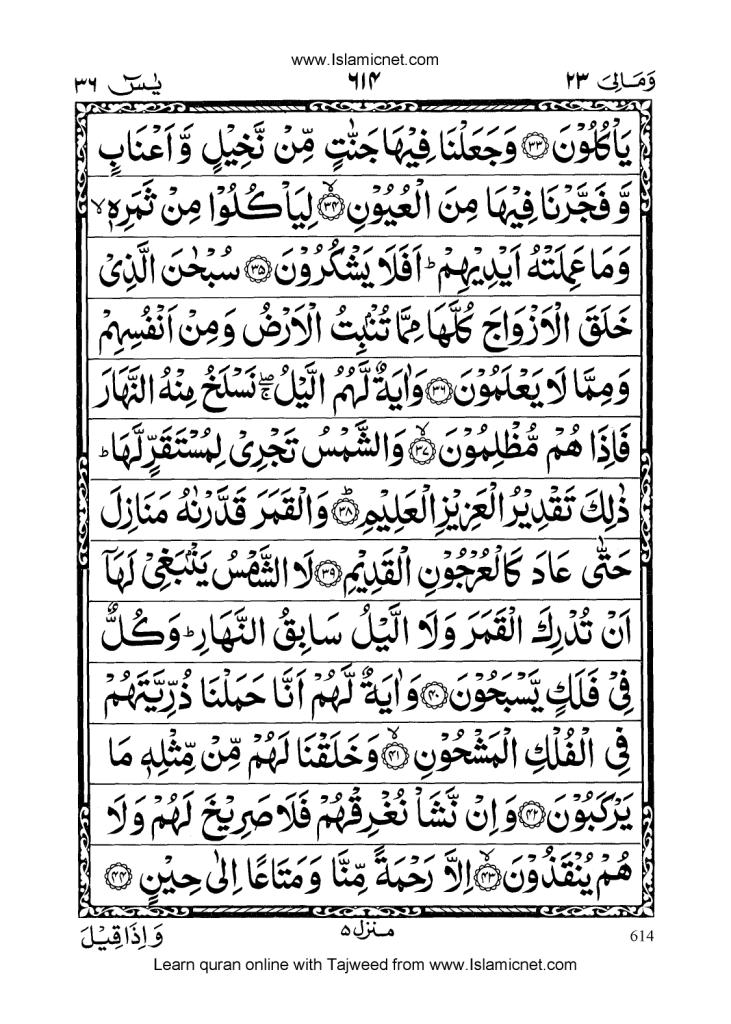 www.Islamicnet.com
وَمَالِیَ ٢٣ ٦١٤ یٰسٓ ٣٦
یَاْكُلُوْنَ ۝٣٣ وَجَعَلْنَا فِیْهَا جَنّٰتٍ مِّنْ نَّخِیْلٍ وَّاَعْنَابٍ
وَّفَجَّرْنَا فِیْهَا مِنَ الْعُیُوْنِ ۝٣٤ۙ لِیَاْكُلُوْا مِنْ ثَمَرِهٖۙ
وَمَا عَمِلَتْهُ اَیْدِیْهِمْؕ اَفَلَا یَشْكُرُوْنَ ۝٣٥ سُبْحٰنَ الَّذِیْ
خَلَقَ الْاَزْوَاجَ كُلَّهَا مِمَّا تُنْۢبِتُ الْاَرْضُ وَمِنْ اَنْفُسِهِمْ
وَمِمَّا لَا یَعْلَمُوْنَ ۝٣٦ وَاٰیَةٌ لَّهُمُ الَّیْلُ ۖۚ نَسْلَخُ مِنْهُ النَّهَارَ
فَاِذَا هُمْ مُّظْلِمُوْنَ ۝٣٧ۙ وَالشَّمْسُ تَجْرِیْ لِمُسْتَقَرٍّ لَّهَاؕ
ذٰلِكَ تَقْدِیْرُ الْعَزِیْزِ الْعَلِیْمِ ۝٣٨ؕ وَالْقَمَرَ قَدَّرْنٰهُ مَنَازِلَ
حَتّٰی عَادَ كَالْعُرْجُوْنِ الْقَدِیْمِ ۝٣٩ لَا الشَّمْسُ یَنْۢبَغِیْ لَهَاۤ
اَنْ تُدْرِكَ الْقَمَرَ وَلَا الَّیْلُ سَابِقُ النَّهَارِؕ وَكُلٌّ
فِیْ فَلَكٍ یَّسْبَحُوْنَ ۝٤٠ وَاٰیَةٌ لَّهُمْ اَنَّا حَمَلْنَا ذُرِّیَّتَهُمْ
فِی الْفُلْكِ الْمَشْحُوْنِ ۝٤١ۙ وَخَلَقْنَا لَهُمْ مِّنْ مِّثْلِهٖ مَا
یَرْكَبُوْنَ ۝٤٢ وَاِنْ نَّشَاْ نُغْرِقْهُمْ فَلَا صَرِیْخَ لَهُمْ وَلَا
هُمْ یُنْقَذُوْنَ ۝٤٣ۙ اِلَّا رَحْمَةً مِّنَّا وَمَتَاعًا اِلٰی حِیْنٍ ۝٤٤
614 منزل ٥ وَاِذَا قِیْلَ
Learn quran online with Tajweed from www.Islamicnet.com